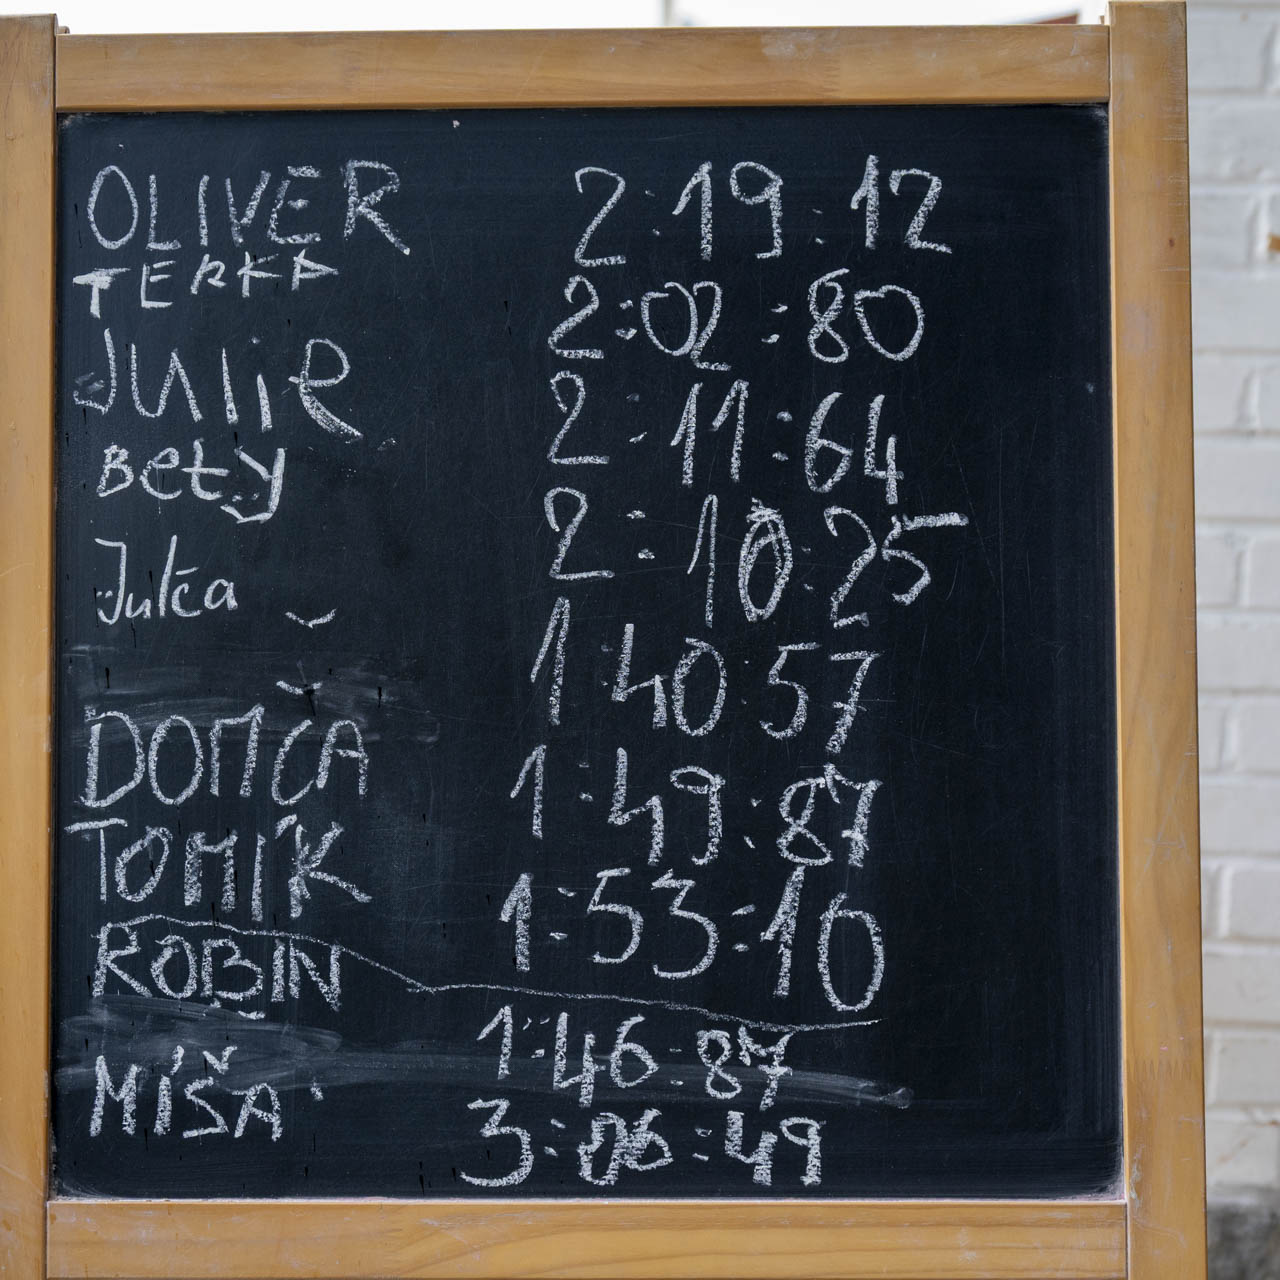 OLIVER 2:19:12
TERKA 2:02:80
JULIE 2:11:64
Bety 2:10:25
Julča 1:40:57
DOMČA 1:49:87
TOMÍK 1:53:10
ROBIN 1:46:87
MÍŠA 3:06:49